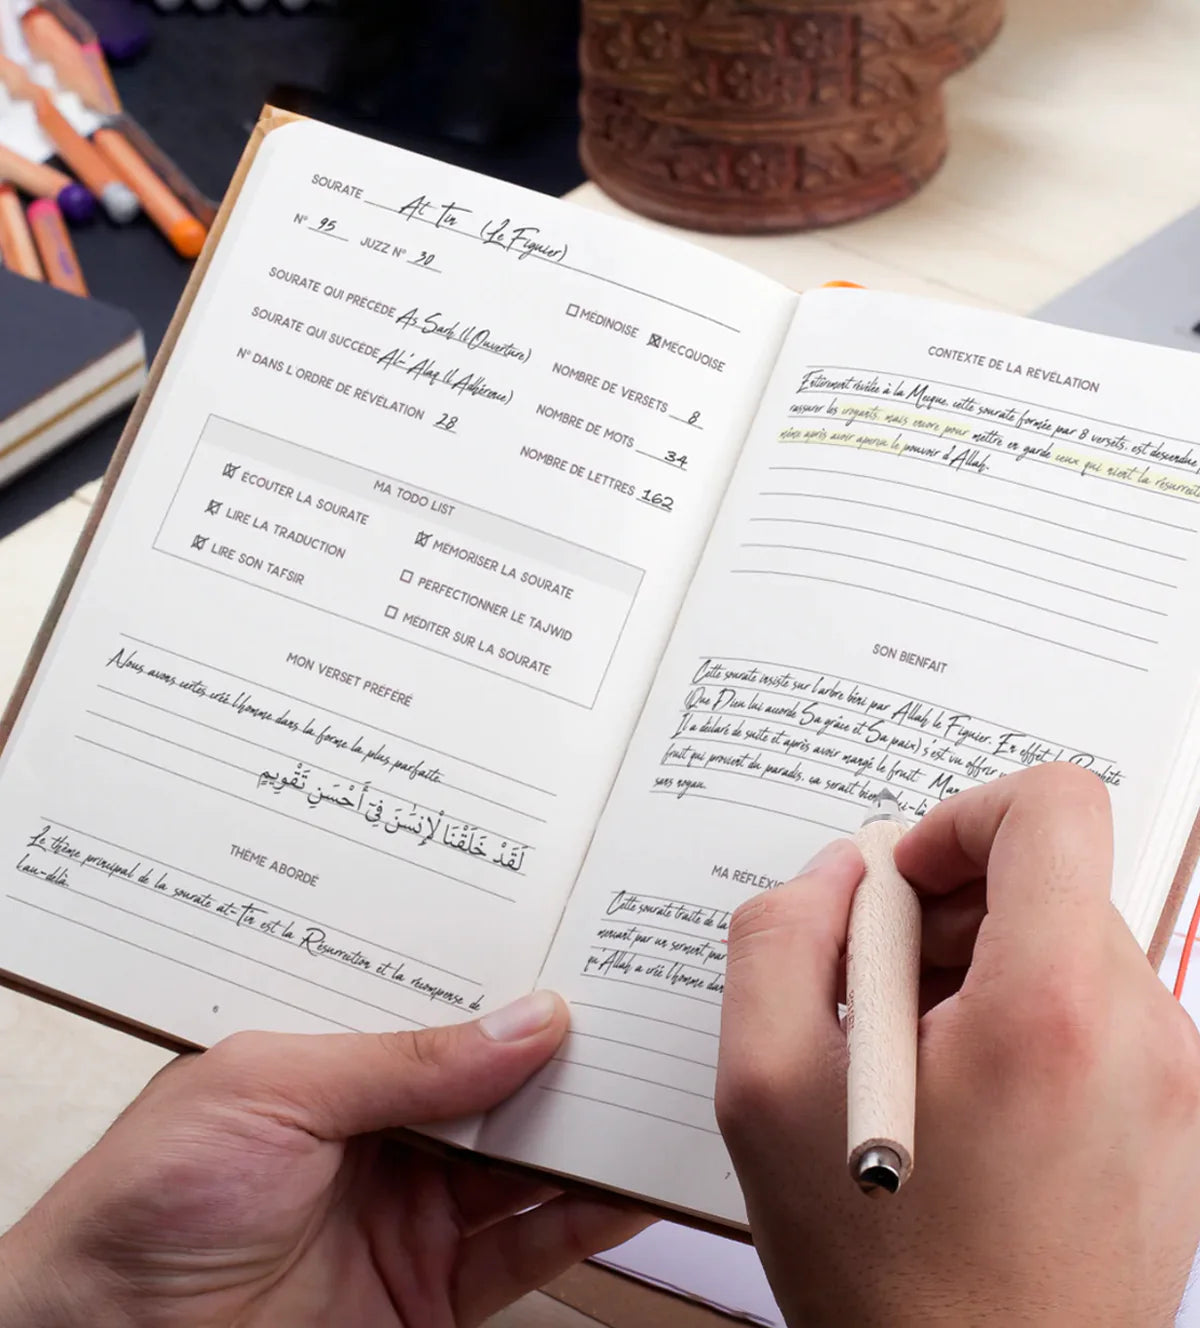 SOURATE At Tin (Le Figuier)
N° 95 JUZZ N° 30
MÉDINOISE MECQUOISE
SOURATE QUI PRÉCÈDE As Sarh (l'Ouverture)
SOURATE QUI SUCCÈDE Al-'Alaq (l'Adhérence)
N° DANS L'ORDRE DE RÉVÉLATION 28
NOMBRE DE VERSETS 8
NOMBRE DE MOTS 34
NOMBRE DE LETTRES 162
MA TODO LIST
ÉCOUTER LA SOURATE
LIRE LA TRADUCTION
LIRE SON TAFSIR
MÉMORISER LA SOURATE
PERFECTIONNER LE TAJWID
MÉDITER SUR LA SOURATE
MON VERSET PRÉFÉRÉ
Nous avons certes créé l'homme dans la forme la plus parfaite.
لَقَدْ خَلَقْنَا لْإِنسَٰنَ فِىٓ أَحْسَنِ تَقْوِيمٍ
THÈME ABORDÉ
Le thème principal de la sourate at-Tin est la Résurrection et la récompense de
l'au-delà.
6
CONTEXTE DE LA RÉVÉLATION
Entièrement révélée à la Mecque, cette sourate formée par 8 versets, est descendue
rassurer les croyants, mais encore pour mettre en garde ceux qui nient la résurrecti
même après avoir aperçu le pouvoir d'Allah.
SON BIENFAIT
Cette sourate insiste sur l'arbre béni par Allah le Figuier. En effet, le Prophète
(Que Dieu lui accorde Sa grâce et Sa paix) s'est vu offrir
Il a déclaré de suite et après avoir mangé le fruit: Man
fruit qui provient du paradis, ça serait bien lui-là
sans noyau.
MA RÉFLEXIO
Cette sourate traite de la
mençant par un serment par
qu'Allah a créé l'homme dan
7